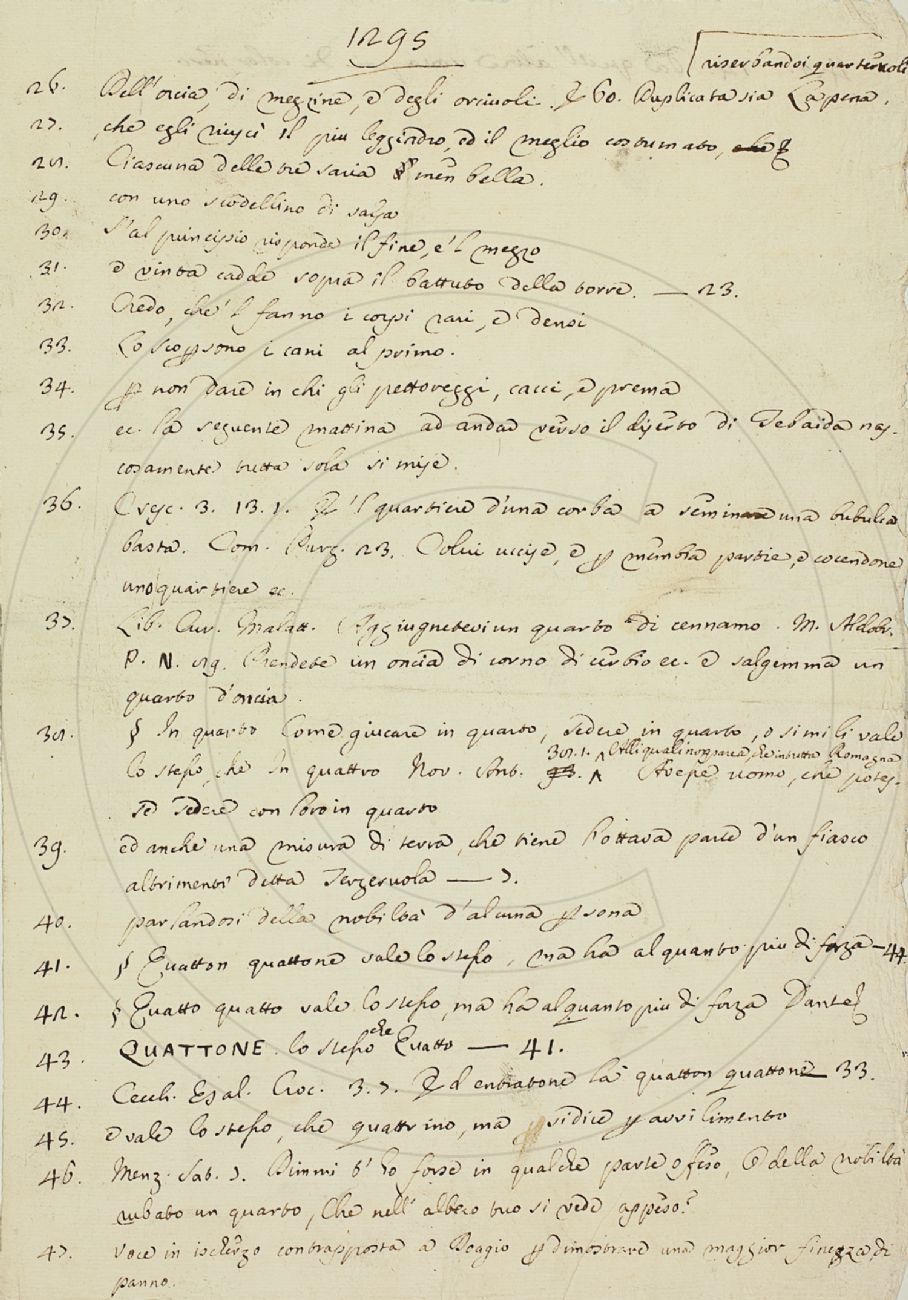 1295
riserbandoi quarteruoli
26. Dell'orcia, di mezzine, e degli orciuoli. 60. Duplicata sia la pena.
27. che egli riuscì il più leggiadro, ed il meglio costumato,
28. Ciascuna delle tre saria men bella.
29. con uno scodellino di salsa
30. S'al principio risponde il fine, e 'l mezzo
31. e vinta cadde sopra il battuto della torre. — 23.
32. Credo, che 'l fanno i corpi rari, e densi
33. Lo scopersono i cani al primo.
34. P non dare in chi gli pettoreggi, cacci, e prema
35. ec. la seguente mattina ad andar verso il diserto di Tebaida nas-
cosamente tutta sola si mise.
36. Cresc. 3. 13. 1. E 'l quartiere d'una corba a seminare una bubulca
basta. Com. Purg. 23. Colui uccise, e p membra partie, e cocendone
uno quartiere ec.
37. Lib. Cur. Malatt. Aggiugnetevi un quarto di cennamo. M. Aldobr.
P. N. 29. Prendete un oncia di corno di cerbio ec. e salgemma un
quarto d'oncia.
38. § In quarto Come giucare in quarto, sedere in quarto, o simili vale
301. 1. Alli quali non parea, che in tutta Romagna
lo stesso, che In quattro Nov. Ant. Avesse uomo, che potes-
se sedere con loro in quarto
39. ed anche una misura di terra, che tiene l'ottava parte d'un fiasco
altrimenti detta Terzeruola — 7.
40. parlandosi della nobiltà d'alcuna psona
41. § Quatton quattone vale lo stesso, ma ha alquanto più di forza — 44
42. § Quatto quatto vale lo stesso, ma ha alquanto più di forza Dante
43. QUATTONE. lo stesso che Quatto — 41.
44. Cecch. Esal. Croc. 3. 7. Ed entratone là quatton quattone — 33.
45. e vale lo stesso, che quattrino, ma si dice p avvilimento
46. Menz. Sat. 7. Dimmi t'ho forse in qualche parte offeso, O della nobiltà
rubato un quarto, Che nell'albero tuo si vede appeso?
47. voce in ischerzo contrapposta a Doagio p dimostrare una maggior finezza di
panno.